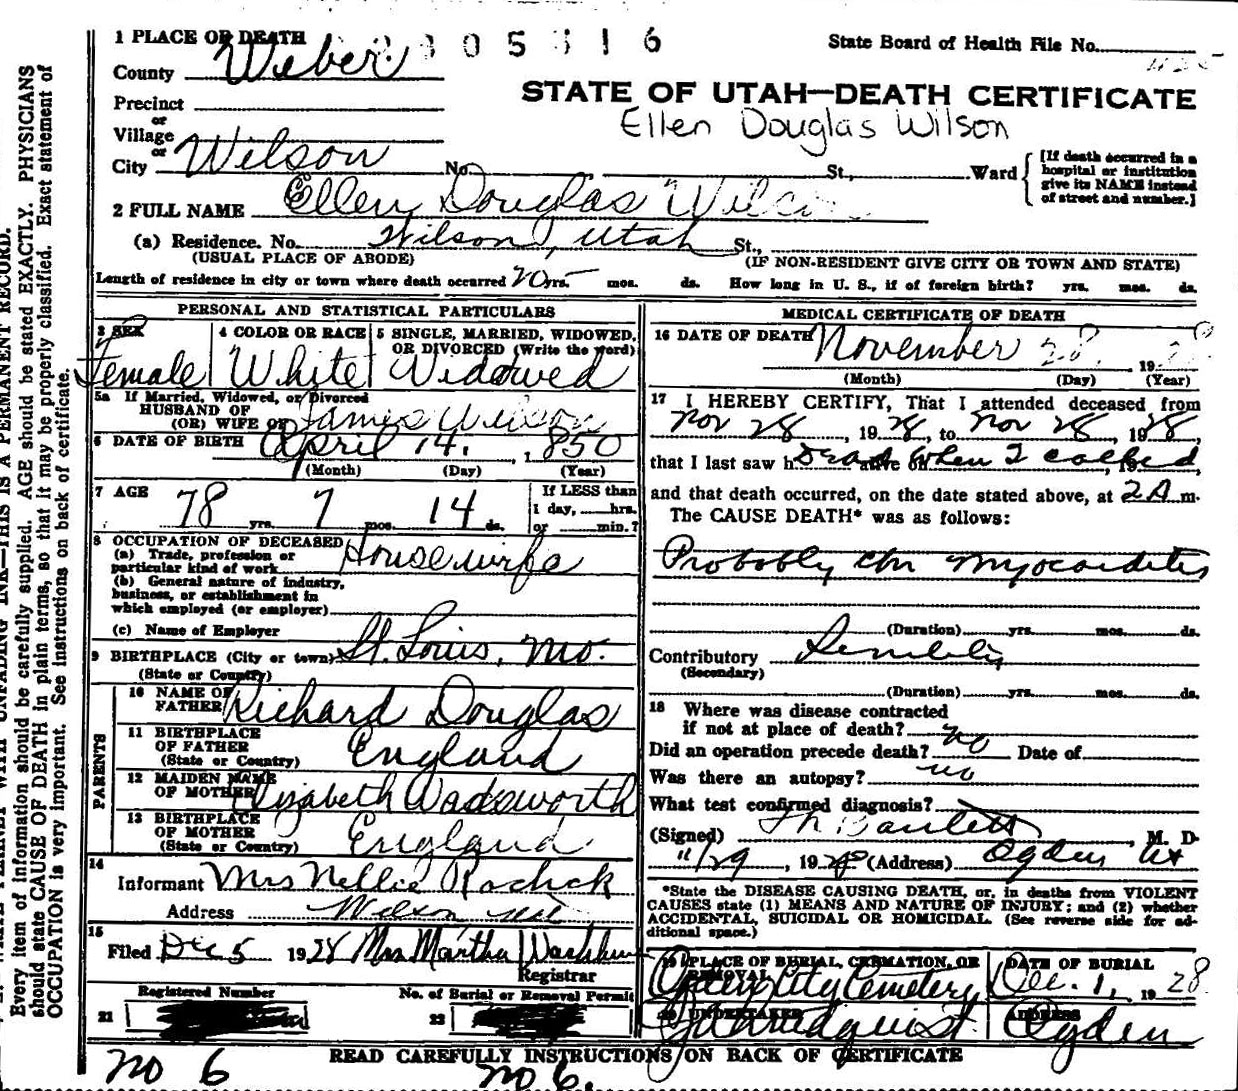 1 PLACE OF DEATH
County Weber.
305316
State Board of Health File No.
STATE OF UTAH—DEATH CERTIFICATE
Ellen Douglas Wilson
Precinct
or
Village
or
City Wilson No. St., Ward
[If death occurred in a
hospital or institution
give its NAME instead
of street and number.]
2 FULL NAME Ellen Douglas
(a) Residence. No. Wilson, Utah St.,
(USUAL PLACE OF ABODE) (IF NON-RESIDENT GIVE CITY OR TOWN AND STATE)
Length of residence in city or town where death occurred yrs. mos. ds. How long in U. S., if of foreign birth? yrs. mos. ds.
PERSONAL AND STATISTICAL PARTICULARS
3 SEX
Female
4 COLOR OR RACE
White
5 SINGLE, MARRIED, WIDOWED,
OR DIVORCED (Write the word)
Widowed
5a If Married, Widowed, or Divorced
HUSBAND OF
(OR) WIFE OF James Wilson
6 DATE OF BIRTH April 14, 1850
(Month) (Day) (Year)
7 AGE 78 yrs. 7 mos. 14 ds.
If LESS than
1 day, hrs.
or min.?
8 OCCUPATION OF DECEASED
(a) Trade, profession or
particular kind of work Housewife
(b) General nature of industry,
business, or establishment in
which employed (or employer)
(c) Name of Employer
9 BIRTHPLACE (City or town) St. Louis, Mo.
(State or Country)
PARENTS
10 NAME OF
FATHER Richard Douglas
11 BIRTHPLACE
OF FATHER
(State or Country) England
12 MAIDEN NAME
OF MOTHER Elizabeth Wadsworth
13 BIRTHPLACE
OF MOTHER
(State or Country) England
14
Informant Mrs Nellie
Address Wilson
15
Filed Dec 5 1928 Mrs Martha
Registrar
Registered Number
21
No. of Burial or Removal Permit
22
MEDICAL CERTIFICATE OF DEATH
16 DATE OF DEATH November 28, 19
(Month) (Day) (Year)
17 I HEREBY CERTIFY, That I attended deceased from
Nov 28, 1928, to Nov 28, 1928,
that I last saw h Dead when I called, 19
and that death occurred, on the date stated above, at 2A m.
The CAUSE DEATH* was as follows:
Probably chr myocarditis
(Duration) yrs. mos. ds.
Contributory
(Secondary)
(Duration) yrs. mos. ds.
18 Where was disease contracted
if not at place of death? no
Did an operation precede death? no Date of
Was there an autopsy?
What test confirmed diagnosis?
(Signed) Bartlett, M. D.
11/29, 1928 (Address) Ogden Ut
*State the DISEASE CAUSING DEATH, or, in deaths from VIOLENT
CAUSES state (1) MEANS AND NATURE OF INJURY; and (2) whether
ACCIDENTAL, SUICIDAL OR HOMICIDAL. (See reverse side for ad-
ditional space.)
19 PLACE OF BURIAL, CREMATION, OR
REMOVAL
Ogden City Cemetery
DATE OF BURIAL
Dec. 1, 1928.
20 UNDERTAKER
ADDRESS
Ogden
READ CAREFULLY INSTRUCTIONS ON BACK OF CERTIFICATE
No 6 No 6.
Every item of information should be carefully supplied. AGE should be stated EXACTLY. PHYSICIANS
should state CAUSE OF DEATH in plain terms, so that it may be properly classified. Exact statement of
OCCUPATION is very important. See instructions on back of certificate.